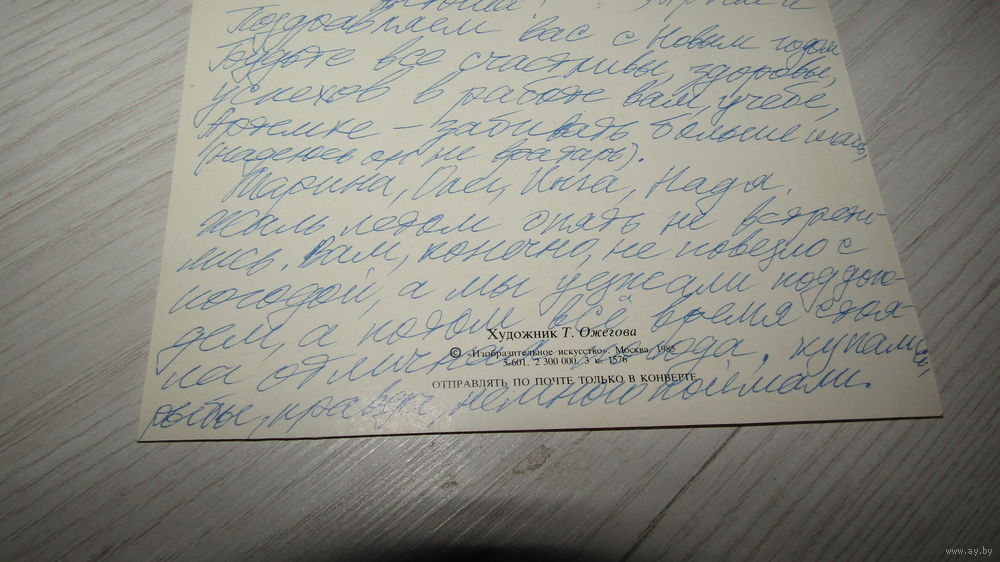 Поздравляем вас с Новым годом
Будьте все счастливы, здоровы,
успехов в работе вам, учёбе,
Артемке – забивать больше шайб,
(надеюсь он не вратарь).
Марина, Олег, Инга, Надя.
Жаль летом опять не встрети-
лись. Вам, конечно, не повезло с
погодой, а мы уезжали под дож-
дем, а потом всё время стоя-
ла отличная погода, купались,
рыбы, правда, немного поймали.
Художник Т. Ожегова
© «Изобразительное искусство». Москва. 1985
3-601. 2 300 000. 3 к. 1576
ОТПРАВЛЯТЬ ПО ПОЧТЕ ТОЛЬКО В КОНВЕРТЕ
www.ay.by